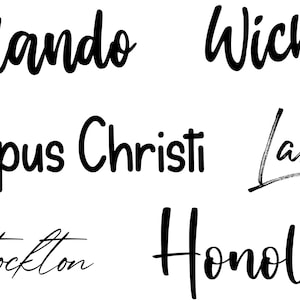 lando Wich
pus Christi La
ockton Honol